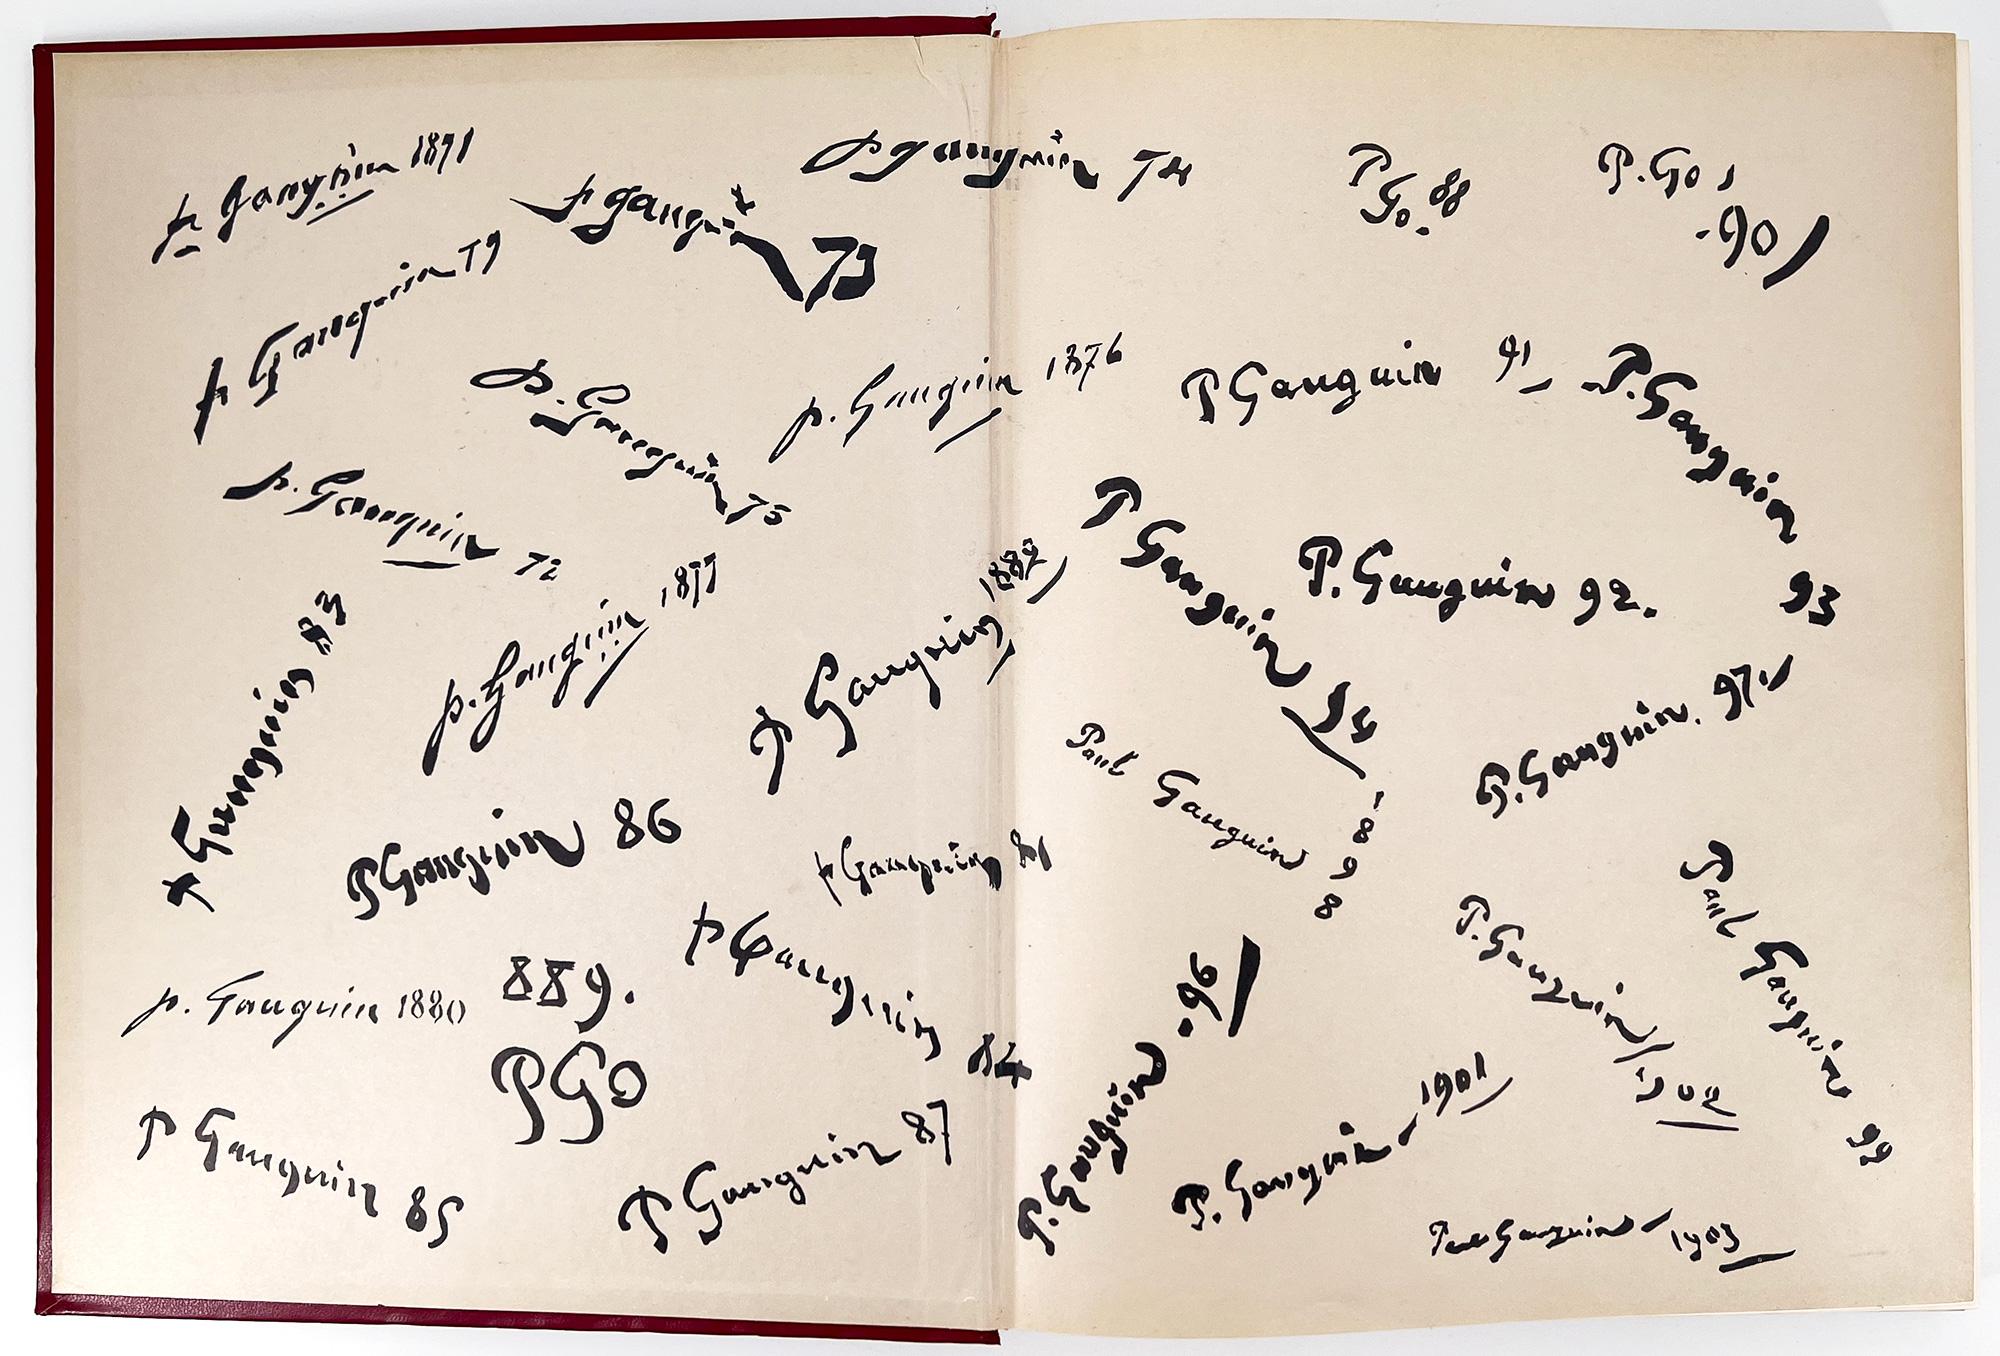 p Gauguin 1871
p Gauguin 73
p gauguin 74
P Go. 88
P. Go. -90
p Gauguin 79
p. Gauguin 75
p. Gauguin 1876
P Gauguin 91
P. Gauguin 93
p. Gauguin 72
p. Gauguin 1877
p Gauguin 1882
P Gauguin 94
P. Gauguin 92.
p Gauguin 83
P Gauguin 86
p Gauguin 81
Paul Gauguin 1898
P. Gauguin. 97.
p. Gauguin 1880
889.
PGO
p Gauguin 84
P. Gauguin -96
P. Gauguin 1902
Paul Gauguin 99
P Gauguin 85
P Gauguin 87
P. Gauguin - 1901
Paul Gauguin - 1903